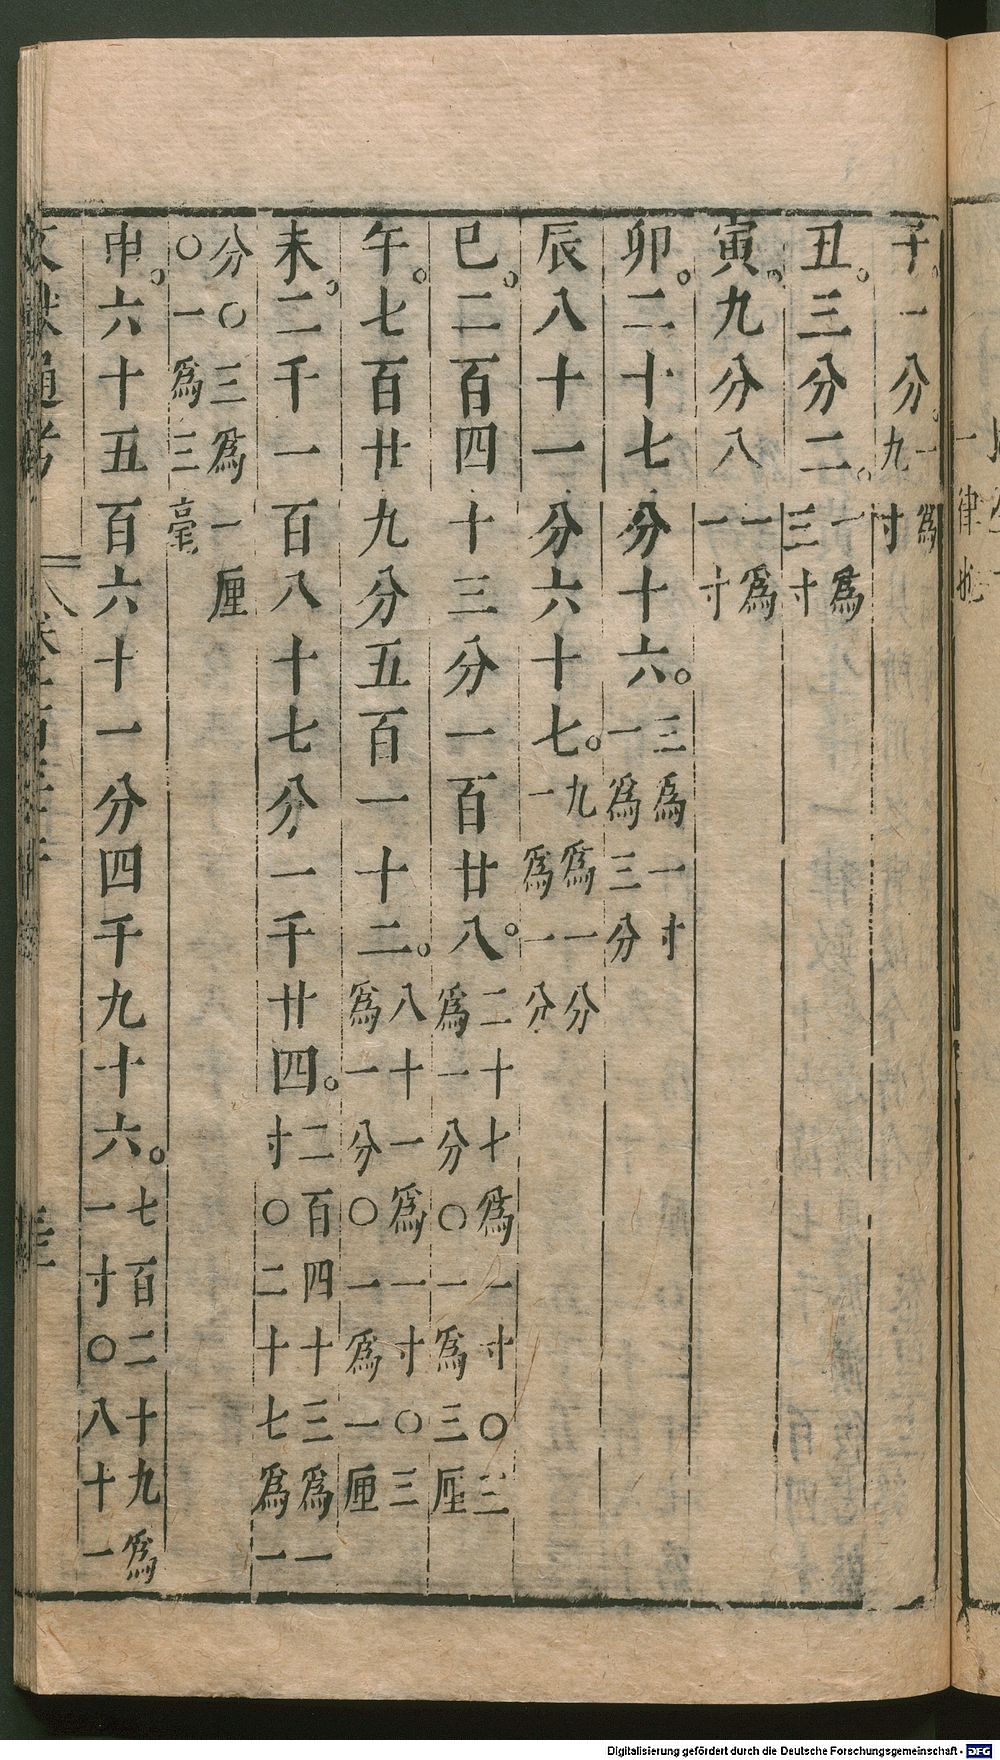 一律也
子。一分。一爲九寸
丑。三分二。一爲三寸
寅。九分八一爲一寸
卯。二十七分十六。三爲一寸一爲三分
辰八十一分六十七。九爲一分一爲一分
巳。二百四十三分一百廿八。二十七爲一寸〇三爲一分〇一爲三厘
午。七百廿九分五百一十二。八十一爲一寸〇三爲一分〇一爲一厘
未。二千一百八十七分一千廿四。二百四十三爲一寸〇二十七爲一
分〇三爲一厘〇一爲三毫
申。六十五百六十一分四千九十六。七百二十九爲一寸〇八十一
文獻通考
Digitalisierung gefördert durch die Deutsche Forschungsgemeinschaft - DFG